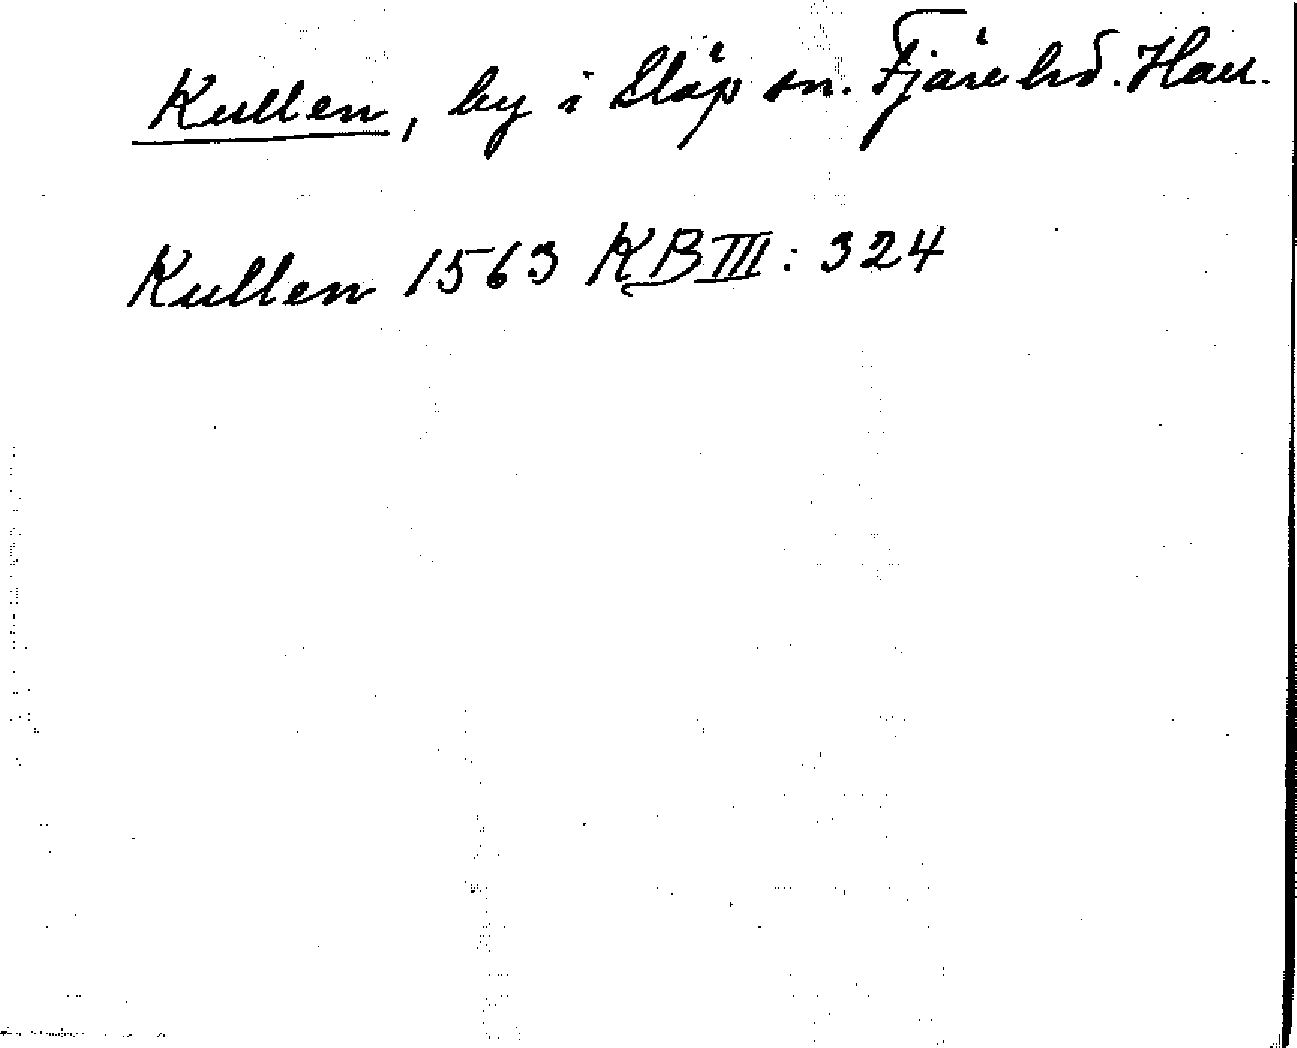 Kullen, by i Släp sn. Fjäre hd. Hall.
Kullen 1563 KB III: 324